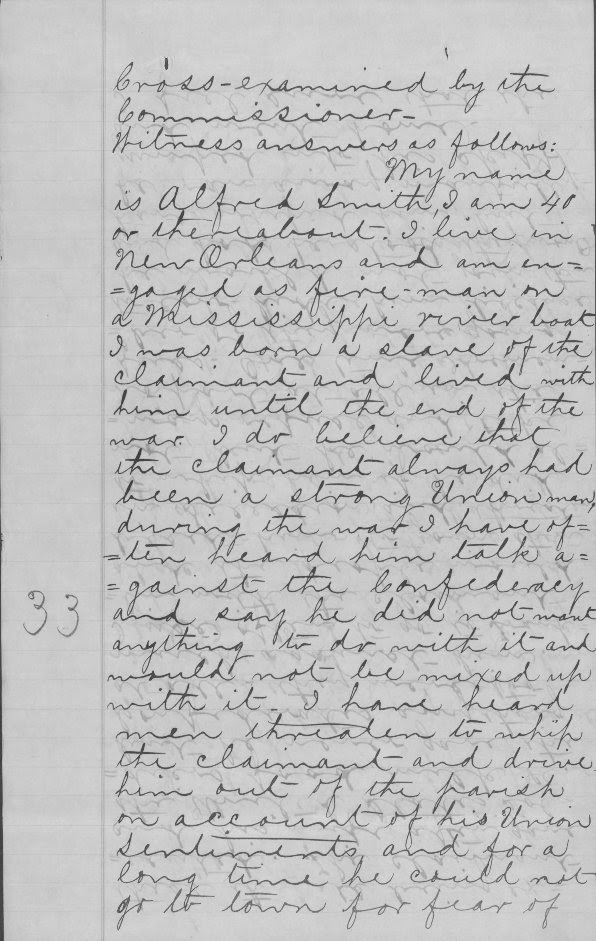 Cross-examined by the
Commissioner-
Witness answers as follows:
My name
is Alfred Smith, I am 40
or thereabout. I live in
New Orleans and am en=
=gaged as fire-man on
a Mississippi river boat
I was born a slave of the
claimant and lived with
him until the end of the
war. I do believe that
the claimant always had
been a strong Union man,
during the war I have of=
=ten heard him talk a=
=gainst the Confederacy
33
and say he did not want
anything to do with it and
would not be mixed up
with it. I have heard
men threaten to whip
the claimant and drive
him out of the parish
on account of his Union
sentiments, and for a
long time he could not
go to town for fear of